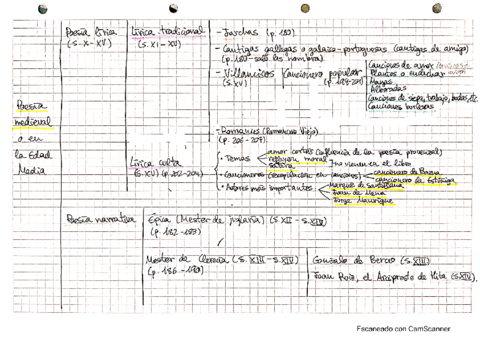 Poesía
medieval
o en
la Edad
Media
Poesía lírica
(S. X - XV)
Lírica tradicional
(S. XI - XV)
- Jarchas (p. 180)
- Cantigas gallegas o galaico-portuguesas (cantigas de amigo)
(p. 180 - solo las nombra)
- Villancicos
(S. XV)
Cancionero popular
(p. 194-201)
Canciones de amor
Plantos o endechas
Mayas
Alboradas
Canciones de siega, trabajo, bodas, etc.
Canciones burlescas
- Romances (Romancero Viejo)
(p. 206 - 207)
Lírica culta
(S. XV) (p. 202-204)
• Temas
amor cortés (influencia de la poesía provenzal)
reflexión moral
sátira
no vienen en el libro
• Cancioneros (recopilación en
cancionero de Baena
cancionero de Estúñiga
• Autores más importantes
Marqués de Santillana
Juan de Mena
Jorge Manrique
Poesía narrativa
Épica (Mester de juglaría) (S. XII - S. XIV)
(p. 182 - 183)
Mester de Clerecía (S. XIII - S. XIV)
(p. 186 - 190)
Gonzalo de Berceo (S. XIII)
Juan Ruiz, el Arcipreste de Hita (S. XIV).
Escaneado con CamScanner